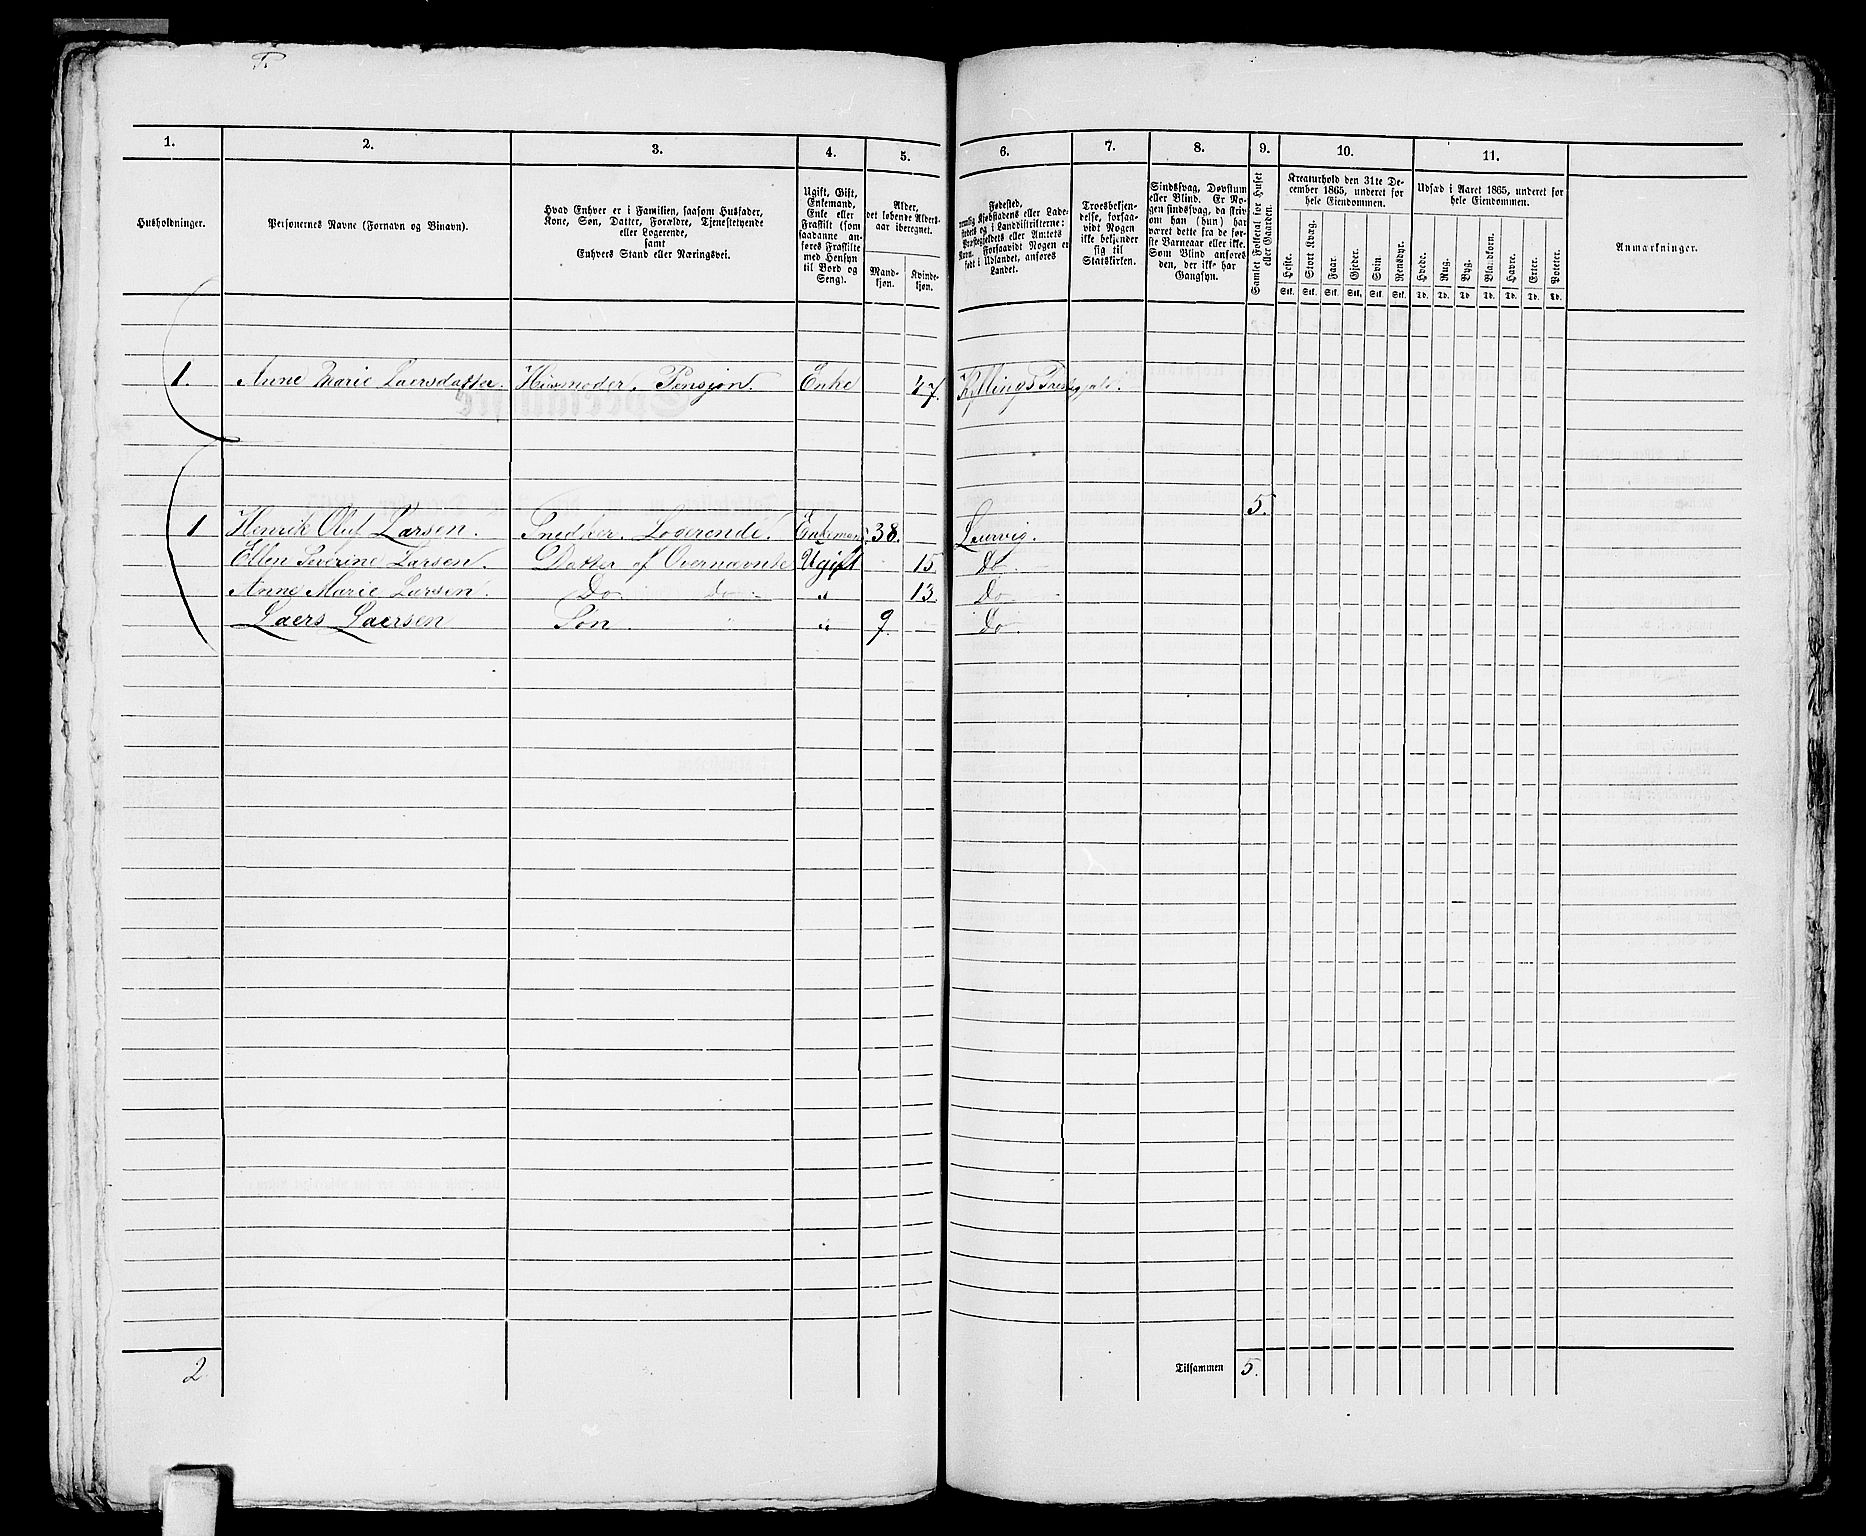 1. 2. 3. 4. 5. 6. 7. 8. 9. 10. 11.
Husholdninger.
Personernes Navne (Fornavn og Binavn).
Hvad Enhver er i Familien, saasom Husfader,
Kone, Søn, Datter, Forældre, Tjenestetyende
eller Logerende,
samt
Enhvers Stand eller Næringsvei.
Ugift, Gift,
Enkemand,
Enke eller
Fraskilt (som
saadanne an-
føres Fraskilte
med Hensyn
til Bord og
Seng).
Alder,
det løbende Alders-
aar iberegnet.
Mand-
kjøn.
Kvinde-
kjøn.
Fødested,
nemlig Kjøbstadens eller Lade-
stedets og i Landdistrikterne:
Præstegjeldets eller Amtets
Navn. Forsaavidt Nogen er
født i Udlandet, anføres
Landet.
Troesbekjen-
delse, forsaa-
vidt Nogen
ikke bekjender
sig til
Statskirken.
Sindssvag, Døvstum
eller Blind. Er No-
gen sindssvag, da skriv
om han (hun) har
været dette fra de før-
ste Barneaar eller ikke.
Som Blind anføres
den, der ikke har
Gangsyn.
Samlet Folketal for Huset
eller Gaarden.
Kreaturhold den 31te De-
cember 1865, underet for
hele Eiendommen.
Heste. Stort Kvæg. Faar. Gjeder. Svin. Rensdyr.
Stk. Stk. Stk. Stk. Stk. Stk.
Udsæd i Aaret 1865, underet for
hele Eiendommen.
Hvede. Rug. Byg. Blandkorn. Havre. Erter. Poteter.
Td. Td. Td. Td. Td. Td. Td.
Anmærkninger.
1. Anne Marie Laersdatter. Husmoder, Pensjon. Enke 47.
5.
1 Henrik Oluf Larsen. Snedker. Logerende. Enkemand 38. Laurvig.
Ellen Severine Larsen. Datter af Overnævnte Ugift 15 Do
Anne Marie Larsen. Do do " 13 Do
Laers Laersen Søn. " 9 do
2 Tilsammen 5.